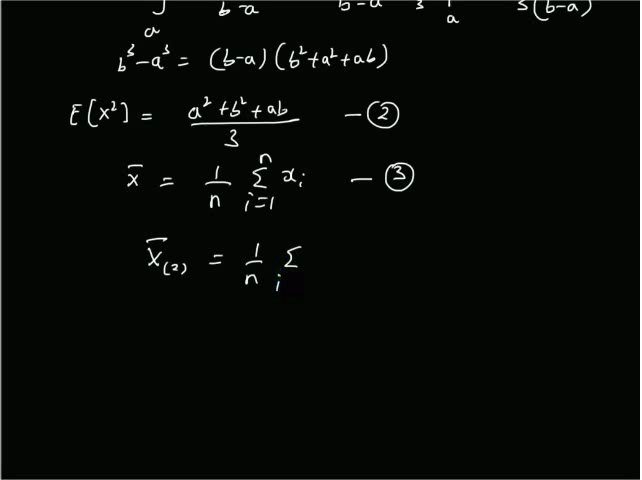 ∫ₐ b-a b-a 3 |ₐ 3(b-a)
b³-a³ = (b-a)(b²+a²+ab)
E[X²] = (a²+b²+ab)/3 — ②
x̄ = 1/n Σᵢ₌₁ⁿ xᵢ — ③
X̄₍₂₎ = 1/n Σᵢ